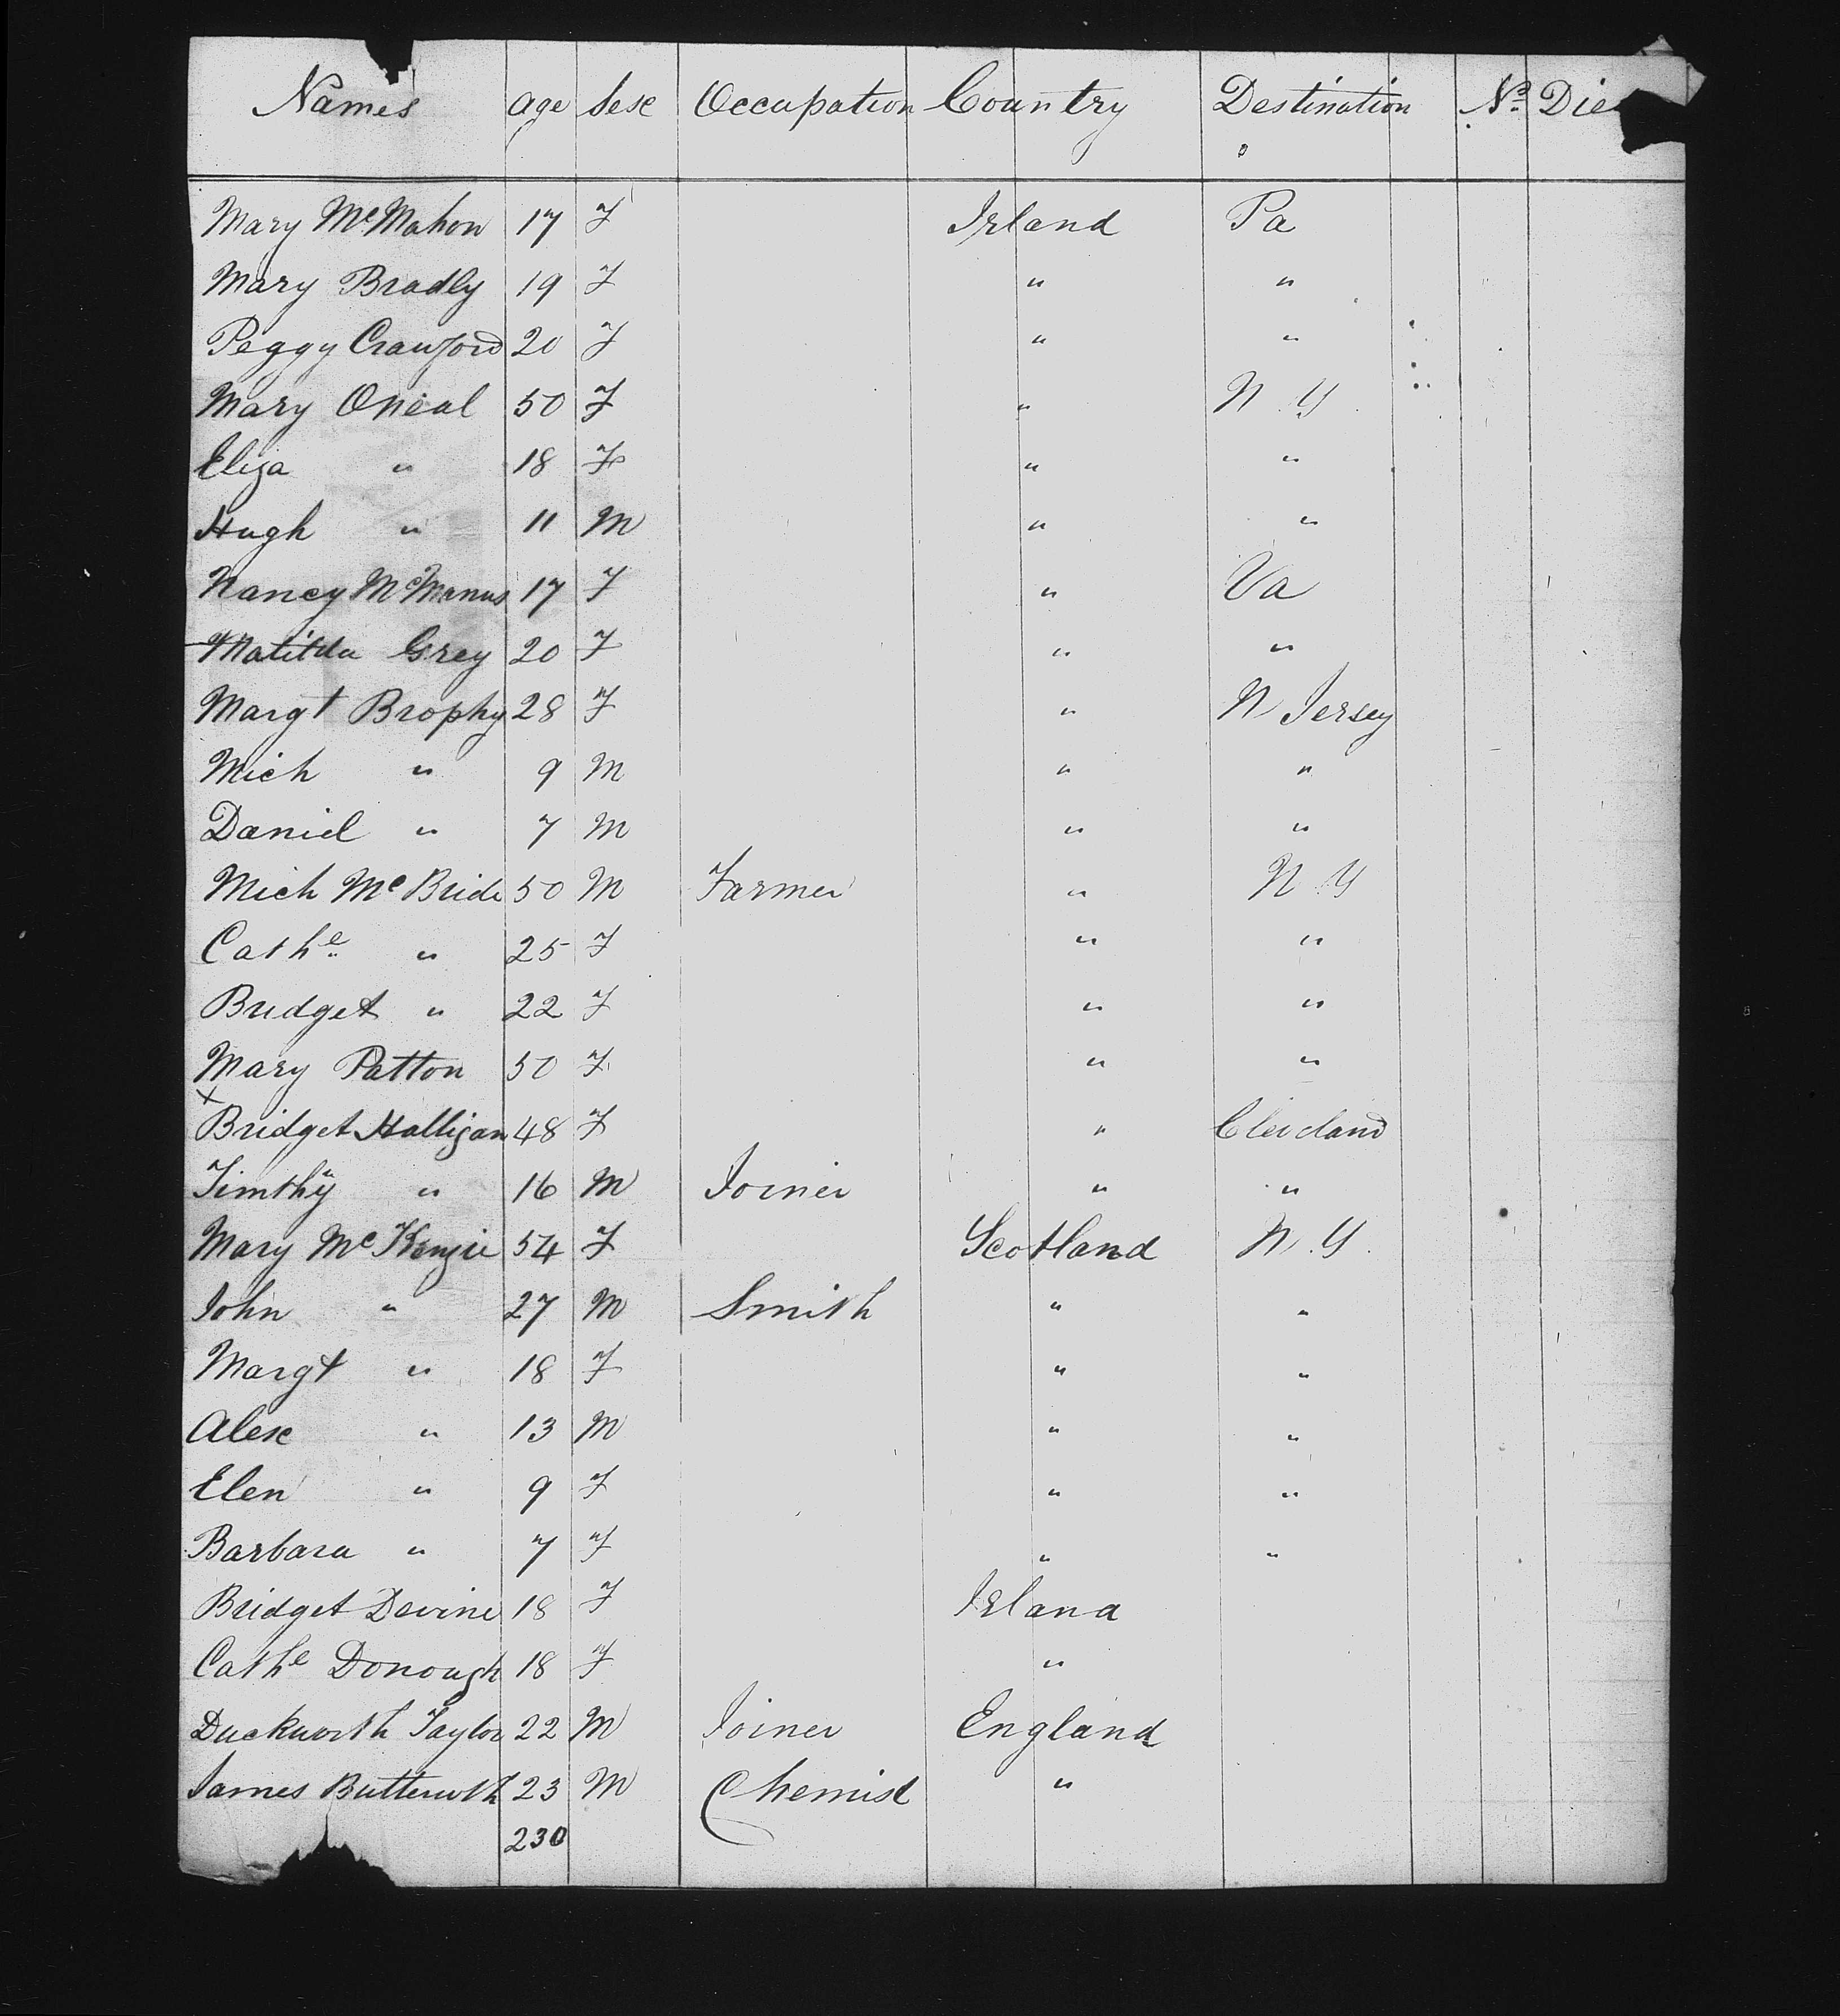 Names age Sex Occupation Country Destination No Die
Mary McMahon 17 F Irland Pa
Mary Bradly 19 F " "
Peggy Crawford 20 F " "
Mary Oneal 50 F " N.Y
Eliza " 18 F " "
Hugh " 11 M " "
Nancy McManus 17 F " Va
Matilda Grey 20 F " "
Margt Brophy 28 F " N Jersey
Mich " 9 M " "
Daniel " 7 M " "
Mich McBride 50 M Farmer " N.Y
Cathe " 25 F " "
Bridget " 22 F " "
Mary Patton 50 F " "
x
Bridget Halligan 48 F " Cleveland
Timthy " 16 M Joiner " "
Mary McKenzie 54 F Scotland N.Y.
John " 27 M Smith " "
Margt " 18 F " "
Alex " 13 M " "
Elen " 9 F " "
Barbara " 7 F " "
Bridget Devine 18 F Irland
Cathe Donough 18 F "
Duckworth Taylor 22 M Joiner England
James Butterwth 23 M Chemist "
230